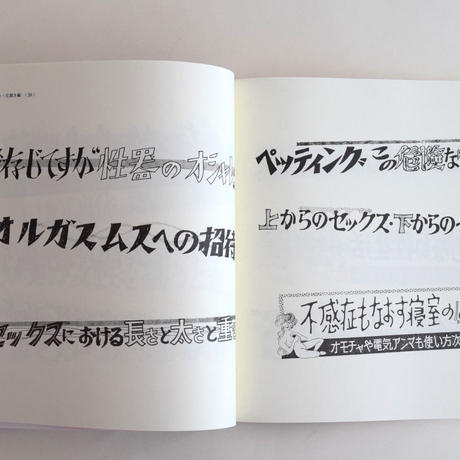 存じですが性器のオシャレ
オルガスムスへの招待
セックスにおける長さと太さと重
ペッティングこの危険な
上からのセックス・下からの
不感症もなおす寝室の
オモチャや電気アンマも使い方次